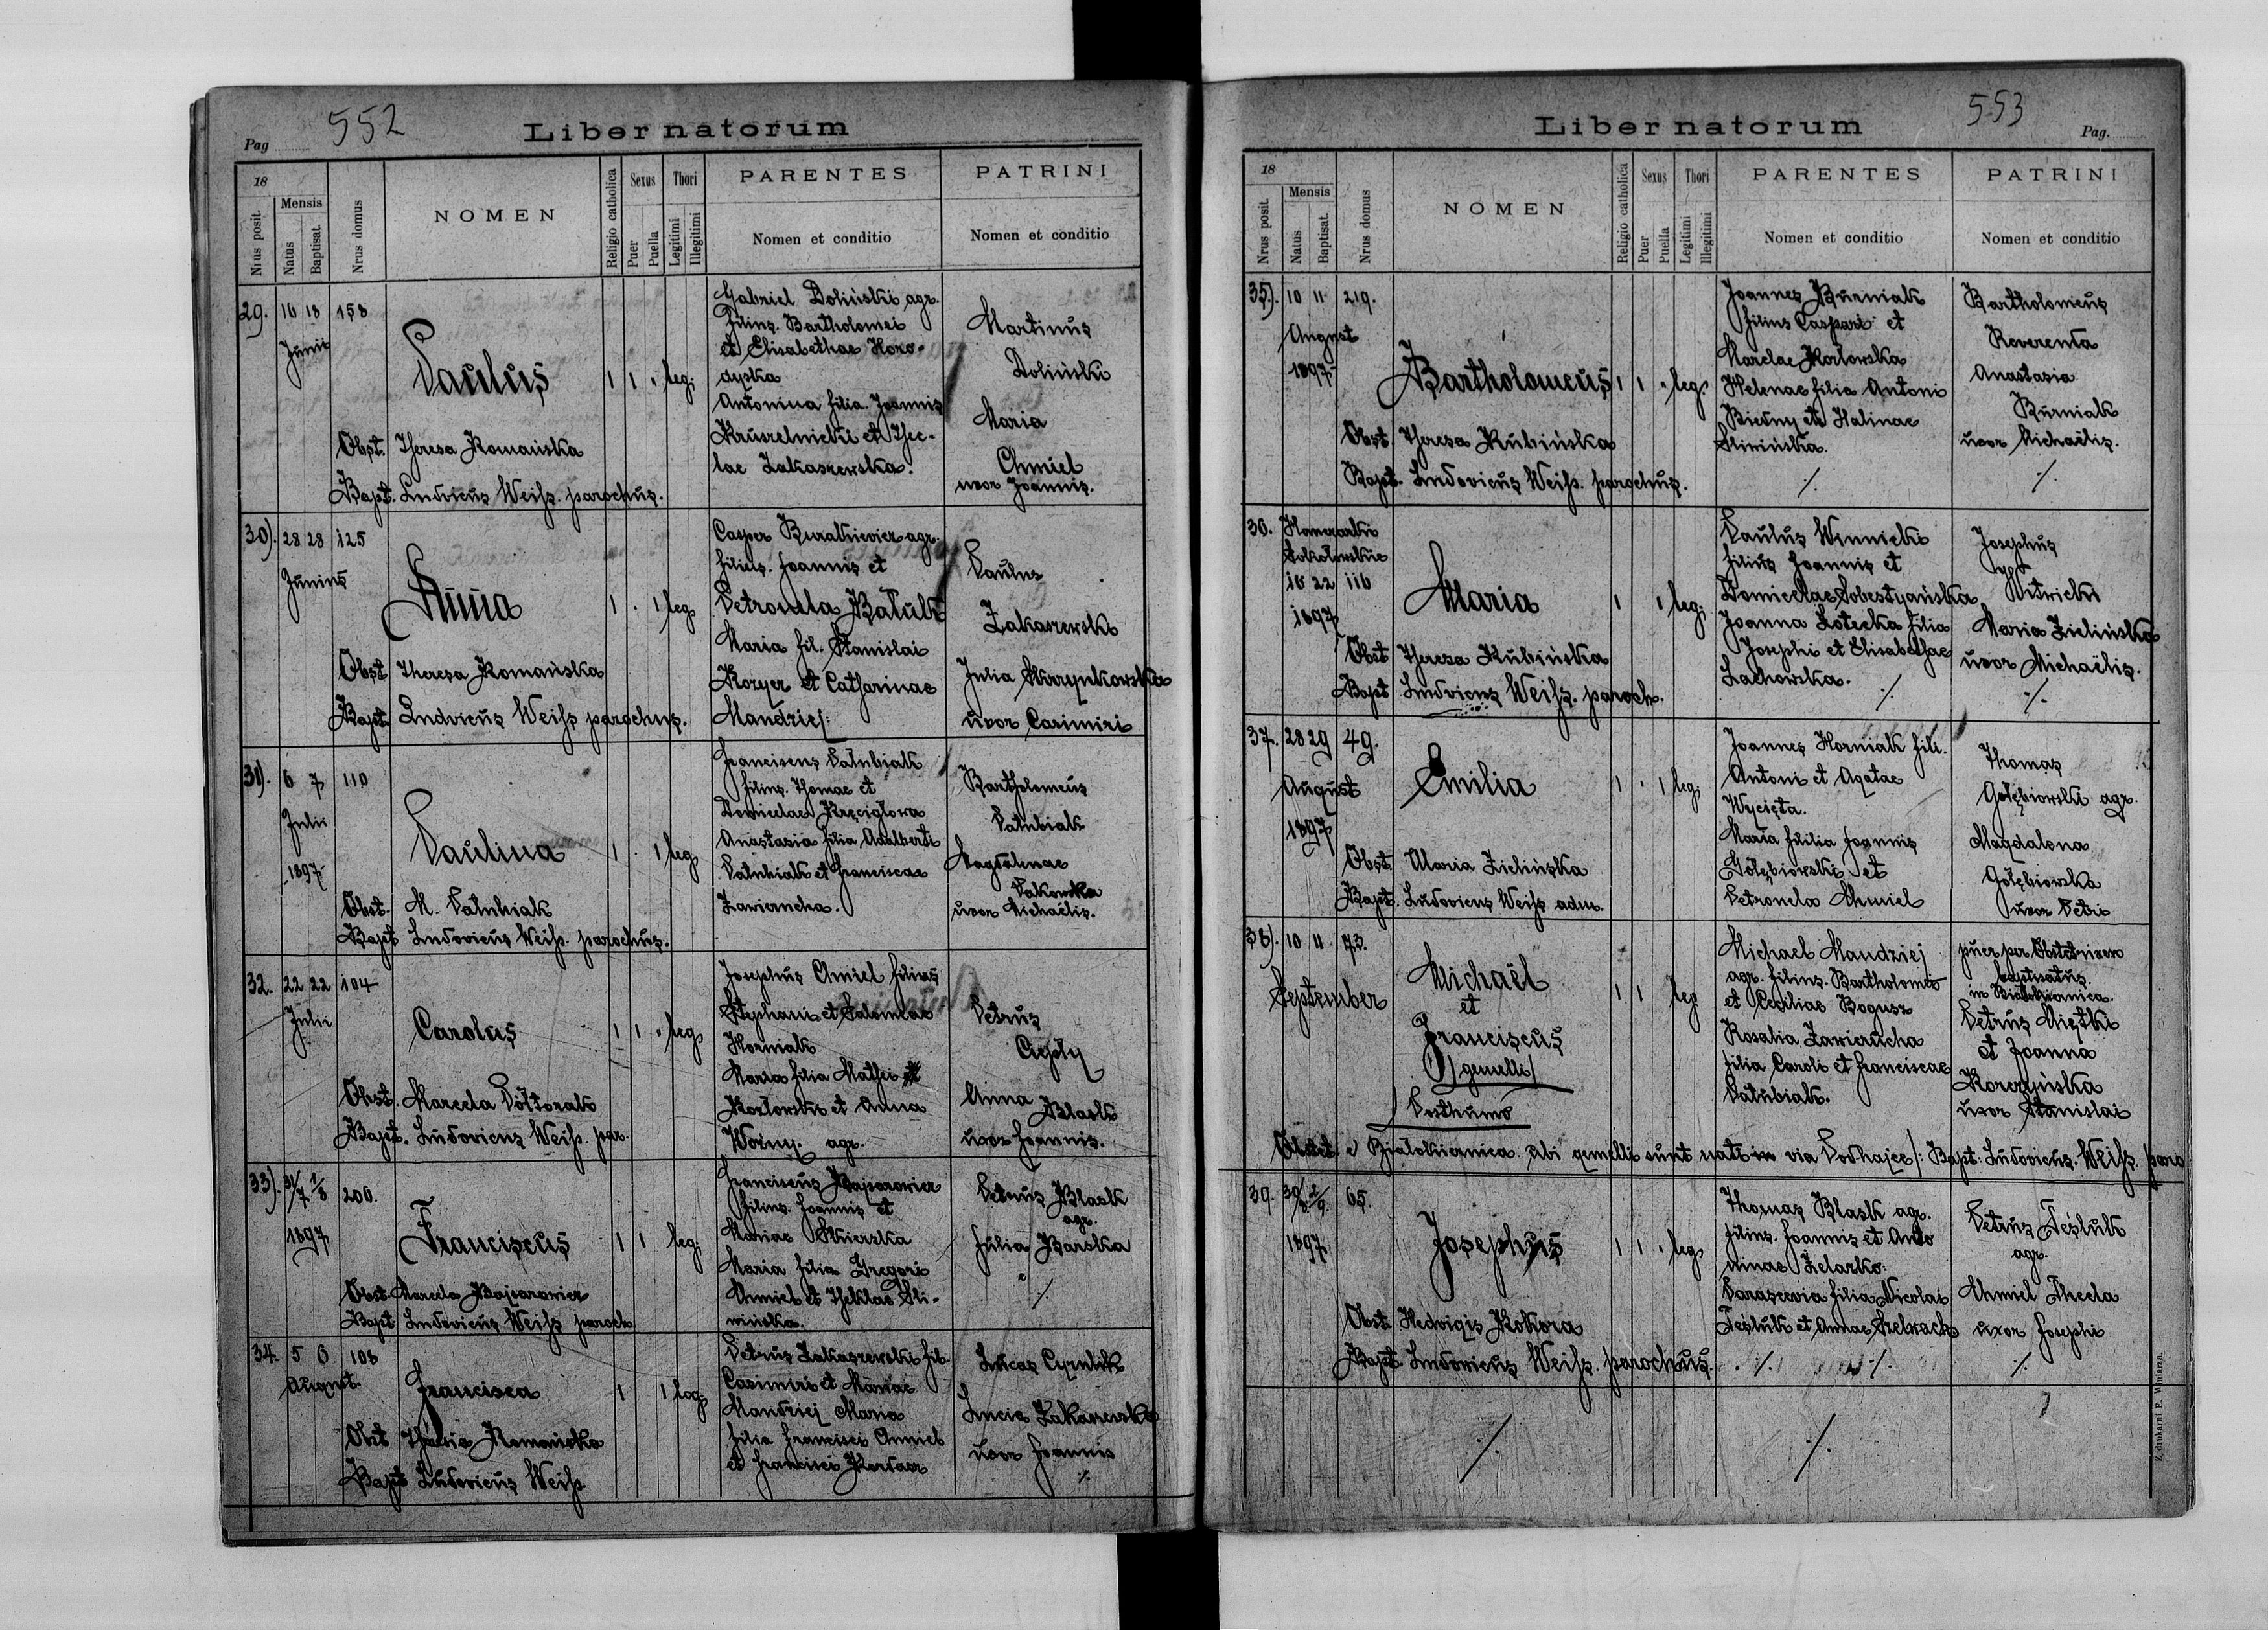 552
Pag
Liber natorum
18
Nrus posit.
Mensis
Natus
Baptisat.
Nrus domus
NOMEN
Religio catholica
Sexus
Puer
Puella
Thori
Legitimi
Illegitimi
PARENTES
Nomen et conditio
PATRINI
Nomen et conditio
29. 16 18 158
Junii
Paulus
1 1 . leg.
Gabriel Doliński agr.
filius. Bartholomei
et Elisabethae Horo-
dyska
Antonina filia. Joannis
Kruszelnicki et Thec-
lae Zakaszewska.
Martinus
Doliński
Maria
Chmiel
uxor Joannis.
Obst. Theresa Romańska
Bapt. Ludvicus Weiss. parochus.
30). 28 28 125
Junius
Anna
1 . 1 leg.
Casper Burakiewicz agr.
filius. Joannis et
Petronela Batuk
Maria fil. Stanislai
Koryer et Catharinae
Mandziej.
Paulus
Zakaszewski
Julia
uxor Casimiri
Obst Theresa Romańska
Bapt. Ludvicus Weiss parochus.
31). 6 7 110
Julii
1897
Paulina
1 . 1 leg.
Franciscus Patubiak
filius. Thomae et
Domicelae Kręciglowa
Anastasia filia Adalberti
Patubiak et Franciscae
Zawierucha.
Bartholomeus
Patubiak
Magdalenae
uxor Michaelis.
Obst. M. Patubiak
Bapt Ludovicus Weiss. parochus.
32. 22 22 104
Julii
Carolus
1 1 . leg.
Josephus Chmiel filius
Stephani et Salomeae
Horniak
Maria filia Mathei
Kozlowski et Anna
Woźny. agr.
Petrus
Ciepły
Anna Blask
uxor Joannis.
Obst. Marcela Półtorak
Bapt. Ludovicus Weiss. par.
33). 31/7 1/8 200.
1897
Franciscus
1 1 leg.
Franciscus Kasparowicz
filius. Joannis et
Mariae Skierska
Maria filia Gregori
Chmiel et Theklae Sli-
wińska.
Petrus Blask
agr.
Julia Barska
./.
Obst Marcela
Bapt Ludovicus Weiss paroch.
34. 5 6 108
August.
Francisca
1 1 leg.
Petrus Zakaszewski fil.
Casimiri et Mariae
Mandziej Maria
filia Francisci Chmiel
et Francisci
Lucas Cyrulik
Lucia Zakaszewska
uxor Joannis
./.
Obst Theresia Romańska
Bapt Ludovicus Weiss.
553
Liber natorum
Pag.
18
Nrus posit.
Mensis
Natus
Baptisat.
Nrus domus
NOMEN
Religio catholica
Sexus
Puer
Puella
Thori
Legitimi
Illegitimi
PARENTES
Nomen et conditio
PATRINI
Nomen et conditio
35). 10 11 219.
August
1897
Bartholomeus
1 1 . leg.
Joannes Burniak
filius Caspari et
Marelae Kozlowska
Helenae filia Antoni
Biedny et Halinae
Sliwińska.
./.
Bartholomeus
Reverenda
Anastasia
Burniak
uxor Michaëlis.
./.
Obst Theresa Rubińska
Bapt. Ludovicus Weiss. parochus.
36.
16 22 116
1897
Maria
1 1 leg.
Paulus Winnicki
filius Joannis et
Domicelae Sobestyańska
Joanna Zotecka filia
Josephi et Elisabethae
Lachowska. ./.
Josephus
Witwicki
Maria Zielińska
uxor Michaëlis.
./.
Obst Theresa Rubińska
Bapt Ludvicus Weiss. paroch.
37. 28 29 49.
August
1897
Emilia
1 . 1 leg.
Joannes Horniak fili.
Antoni et Agatae
Wycięta.
Maria filia Joannis
Gołębiowski et
Petronela Chmiel
Thomas
Gołębiowski agr.
Magdalena
Gołębiowska
uxor Petri
Obst. Maria Zielińska
Bapt. Ludovicus Weiss adm.
38). 10 11 73.
September
Michaël
et
Franciscus
gemelli
Posthumo
1 1 leg
Michael Mandziej
agr. filius. Bartholomeo
et Ceciliae Bogusz
Rosalia Zawierucha
filia Caroli et Franciscae
Patubiak.
puer per Obstetricem
baptisatus
in Białokiernica.
Petrus Miętki
et Joanna
Korczyńska
uxor Stanislai
Obstet. e Białokiernica. ubi gemelli sunt nati in via Podhajce /: Bapt: Ludovicus. Weiss. paro
39. 30/8 2/9. 65.
1897.
Josephus
1 1 . leg
Thomas Blask agr.
filius. Joannis et Anto
ninae Żelasko.
Parascevia filia Nicolai
Teśluk et Annae
./.
Petrus Teśluk
agr.
Chmiel Thecla
uxor Josephi
./.
Obst. Hedvigis Kokora
Bapt Ludovicus Weiss. parochus
./.
./.
Z drukarni E. Winiarza.